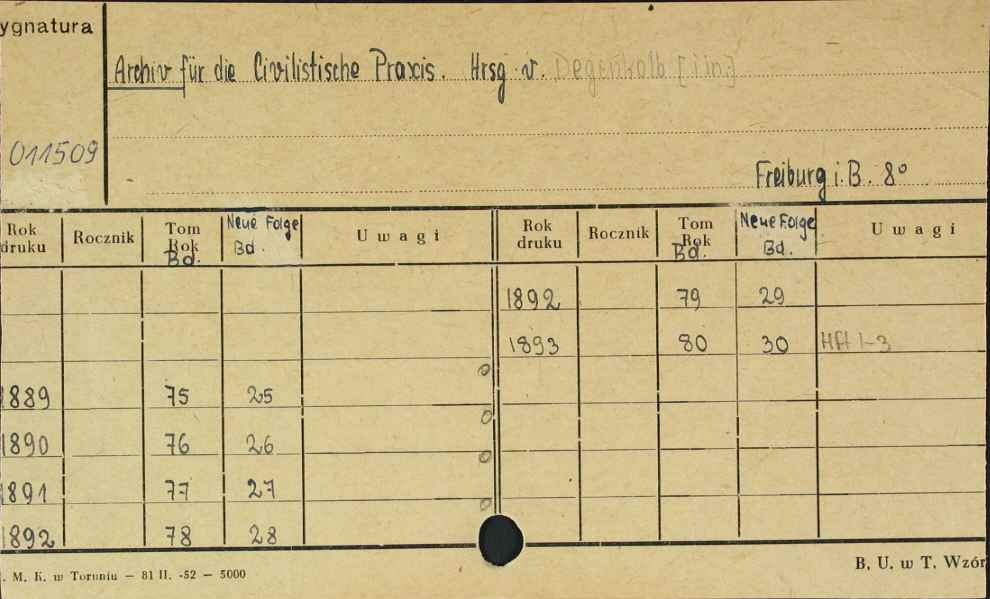 ygnatura
Archiv für die Civilistische Praxis. Hrsg. v. Degenkolb [i in.]
011509
Freiburg i. B. 8°
Rok druku Rocznik Tom Rok Bd. Neue Folge Bd. Uwagi Rok druku Rocznik Tom Rok Bd. Neue Folge Bd. Uwagi
1892 79 29
1893 80 30 Hft 1-3
1889 75 25
1890 76 26
1891 77 27
1892 78 28
. M. K. w Toruniu — 81 II. -52 — 5000
B. U. w T. Wzór